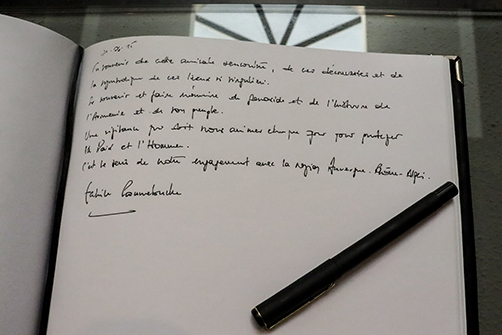 En souvenir de cette amicale rencontre, de ces découvertes et de
la symbolique de ces lieux si singuliers.
Se souvenir et faire mémoire du génocide et de l'histoire de
l'Arménie et de son peuple.
Une vigilance qui doit nous animer chaque jour pour protéger
la Paix et l'Homme.
C'est le sens de notre engagement avec la région Auvergne-Rhône-Alpes.